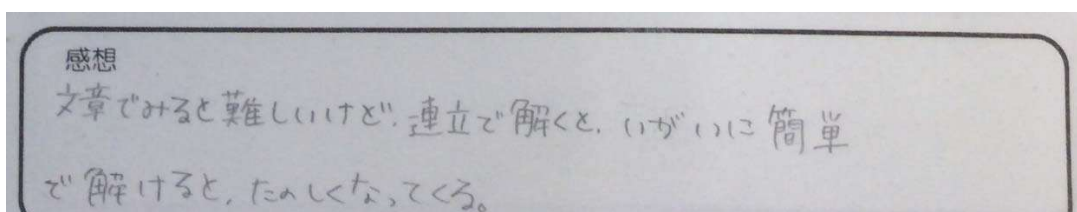 感想
文章でみると難しいけど、連立で解くと、いがいに簡単
で解けると、たのしくなってくる。